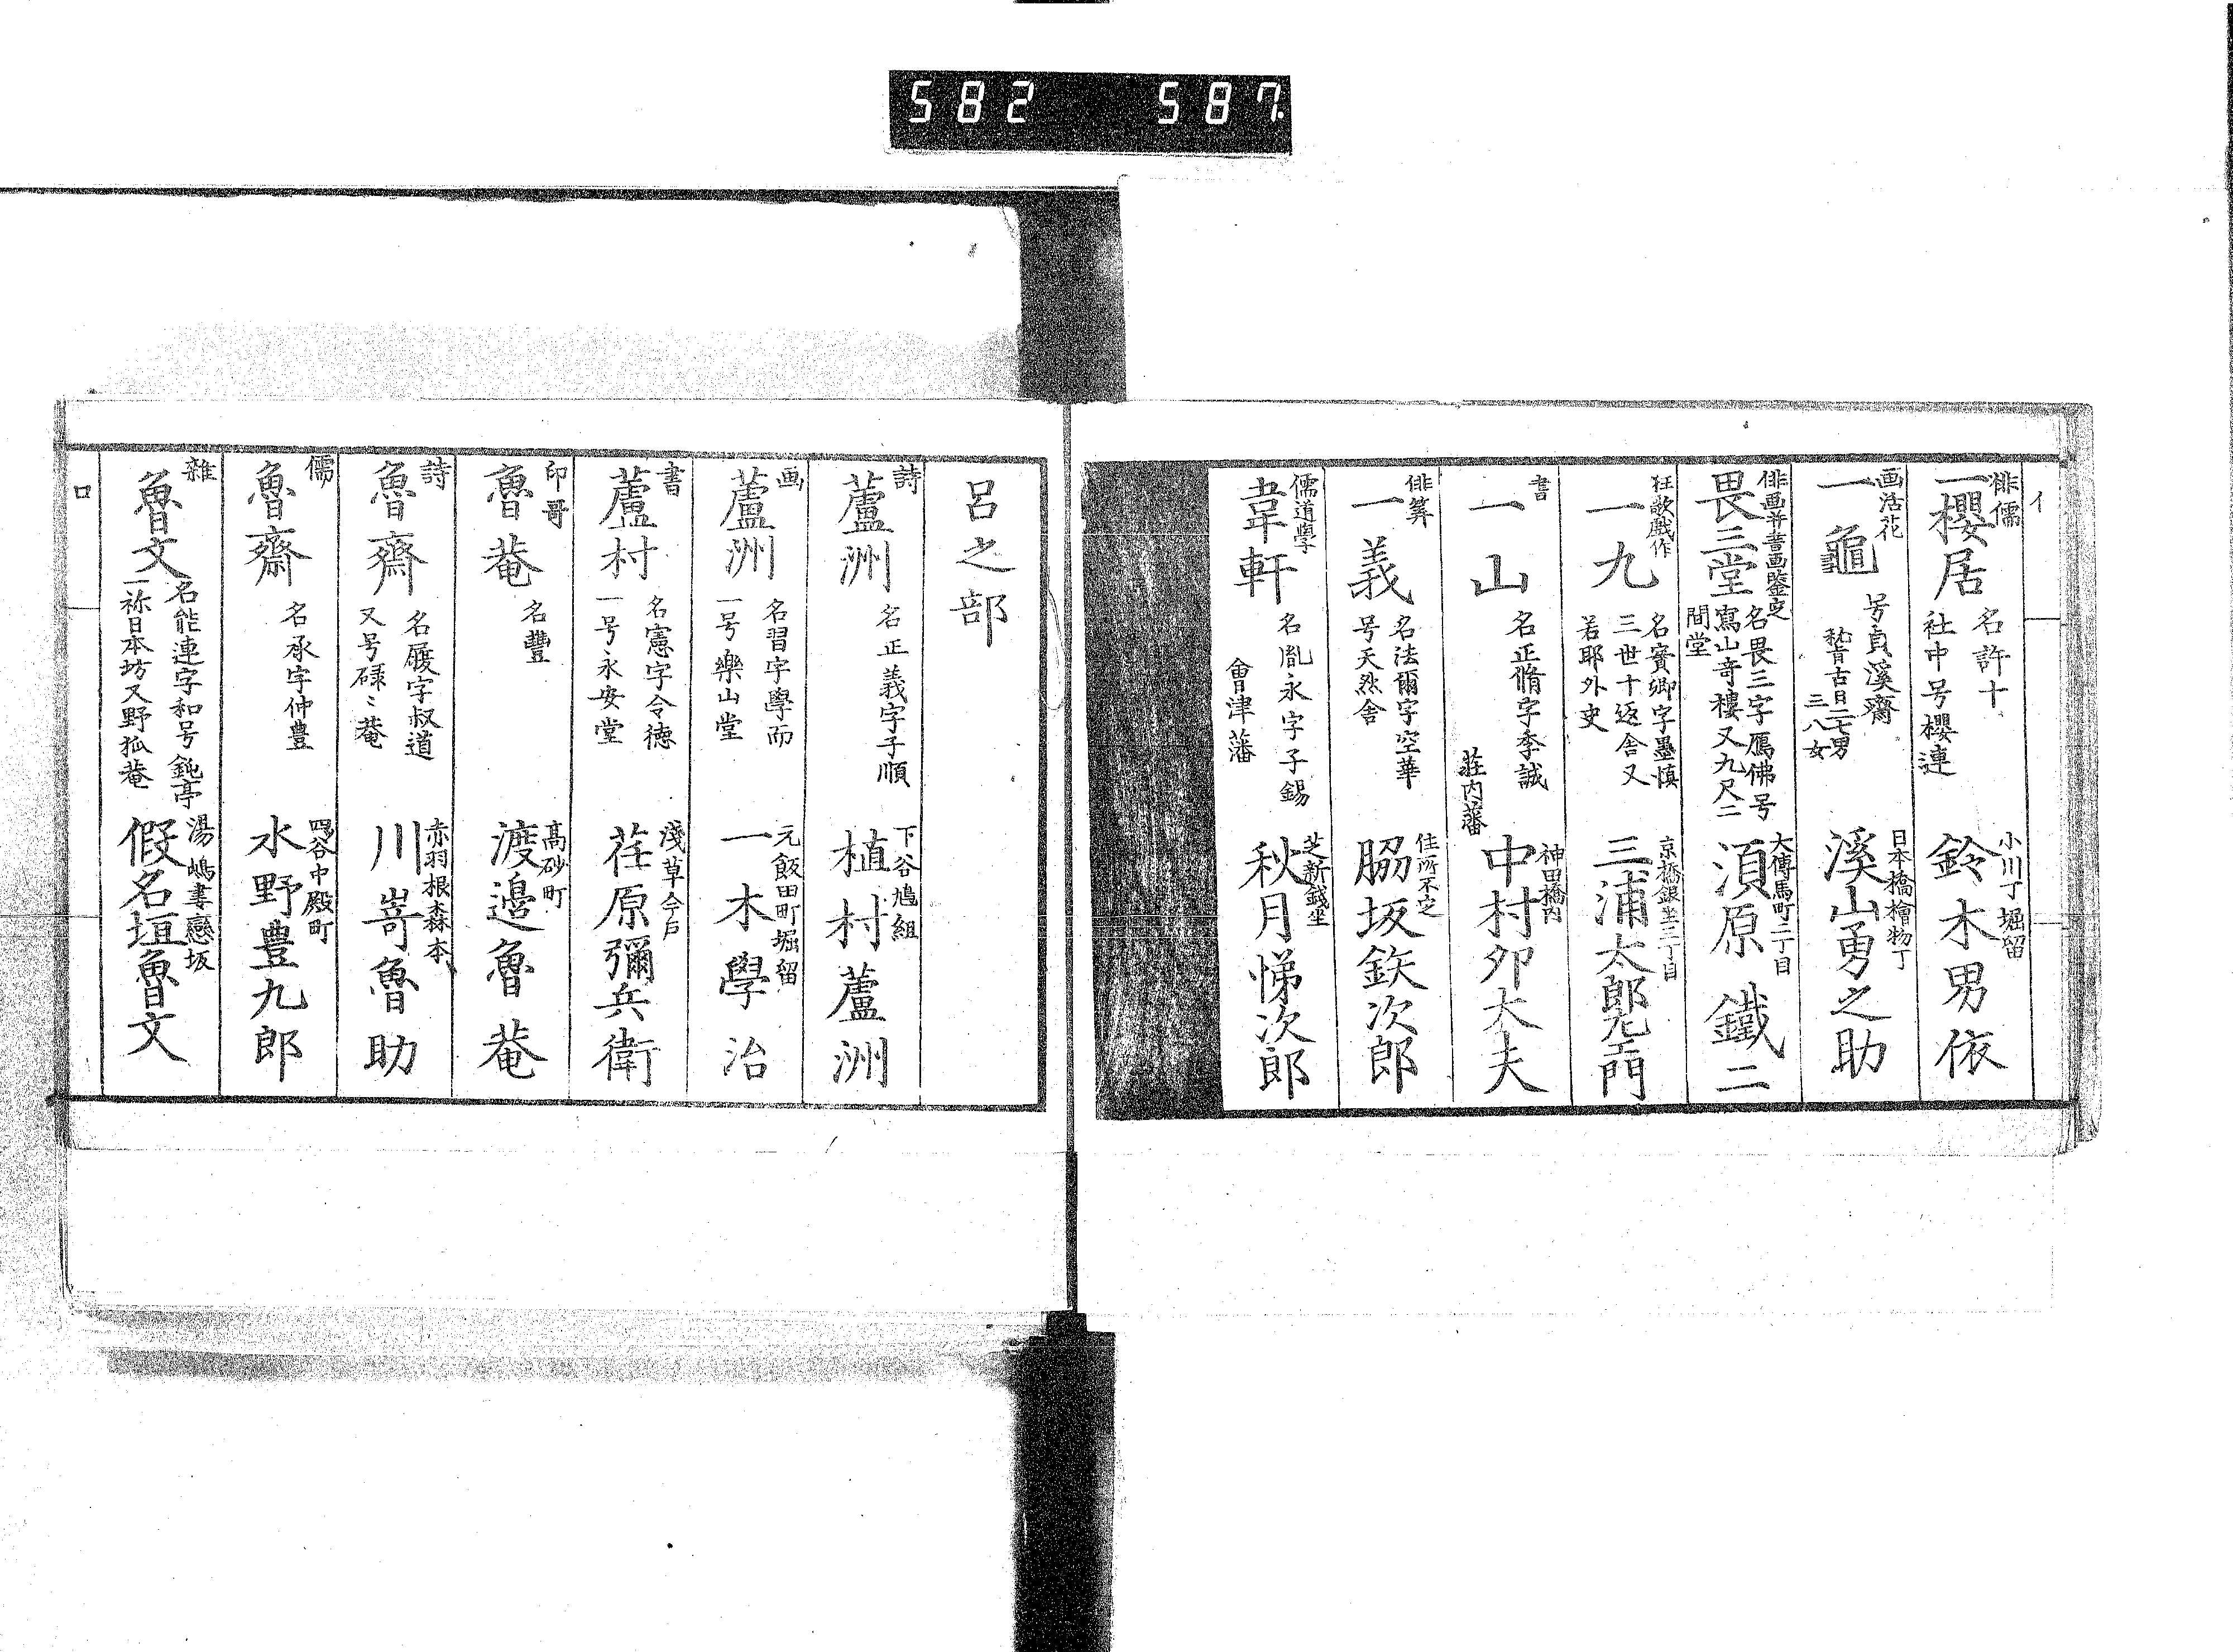 582 587.
イ
俳儒
一櫻居
名許十
社中号櫻連
小川丁堀留
鈴木男依
画活花
一龜
号貞溪齋
稽古日二七男
三八女
日本橋檜物丁
溪山勇之助
俳画并書画鑒定
畏三堂
名畏三字鴈佛号
寫山竒樓又九尺二
間堂
大傳馬町二丁目
須原鐵二
狂歌戯作
一九
名寳卿字墨慎
三世十返舎又
若耶外史
京橋銀坐三丁目
三浦太郎左エ門
書
一山
名正脩字季誠
莊内藩
神田橋内
中村夘太夫
俳算
一義
名法爾字空華
号天然舎
住所不定
脇坂鉄次郎
儒道學
韋軒
名胤永字子錫
會津藩
芝新錢坐
秋月悌次郎
呂之部
詩
蘆洲
名正義字子順
下谷鳩組
植村蘆洲
画
蘆洲
名習字學而
一号樂山堂
元飯田町堀留
一木學治
書
蘆村
名憲字令徳
一号永安堂
淺草今戸
荏原彌兵衛
印哥
魯菴
名豐
髙砂町
渡邉魯菴
詩
魯齋
名履字叔道
又号碌〻菴
赤羽根森本
川嵜魯助
儒
魯齋
名承字仲豊
四谷中殿町
水野豊九郎
雜
魯文
名能連字和号鈍亭
一称日本坊又野狐菴
湯嶋妻戀坂
假名垣魯文
ロ